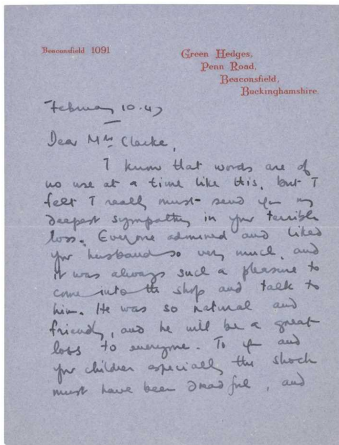 Beaconsfield 1091
Green Hedges,
Penn Road,
Beaconsfield,
Buckinghamshire.
February 10. 47
Dear Mrs Clarke,
I know that words are of
no use at a time like this, but I
felt I really must send you my
deepest sympathy in your terrible
loss. Everyone admired and liked
your husband so very much, and
it was always such a pleasure to
come into the shop and talk to
him. He was so natural and
friendly, and he will be a great
loss to everyone. To you and
your children especially the shock
must have been dreadful, and